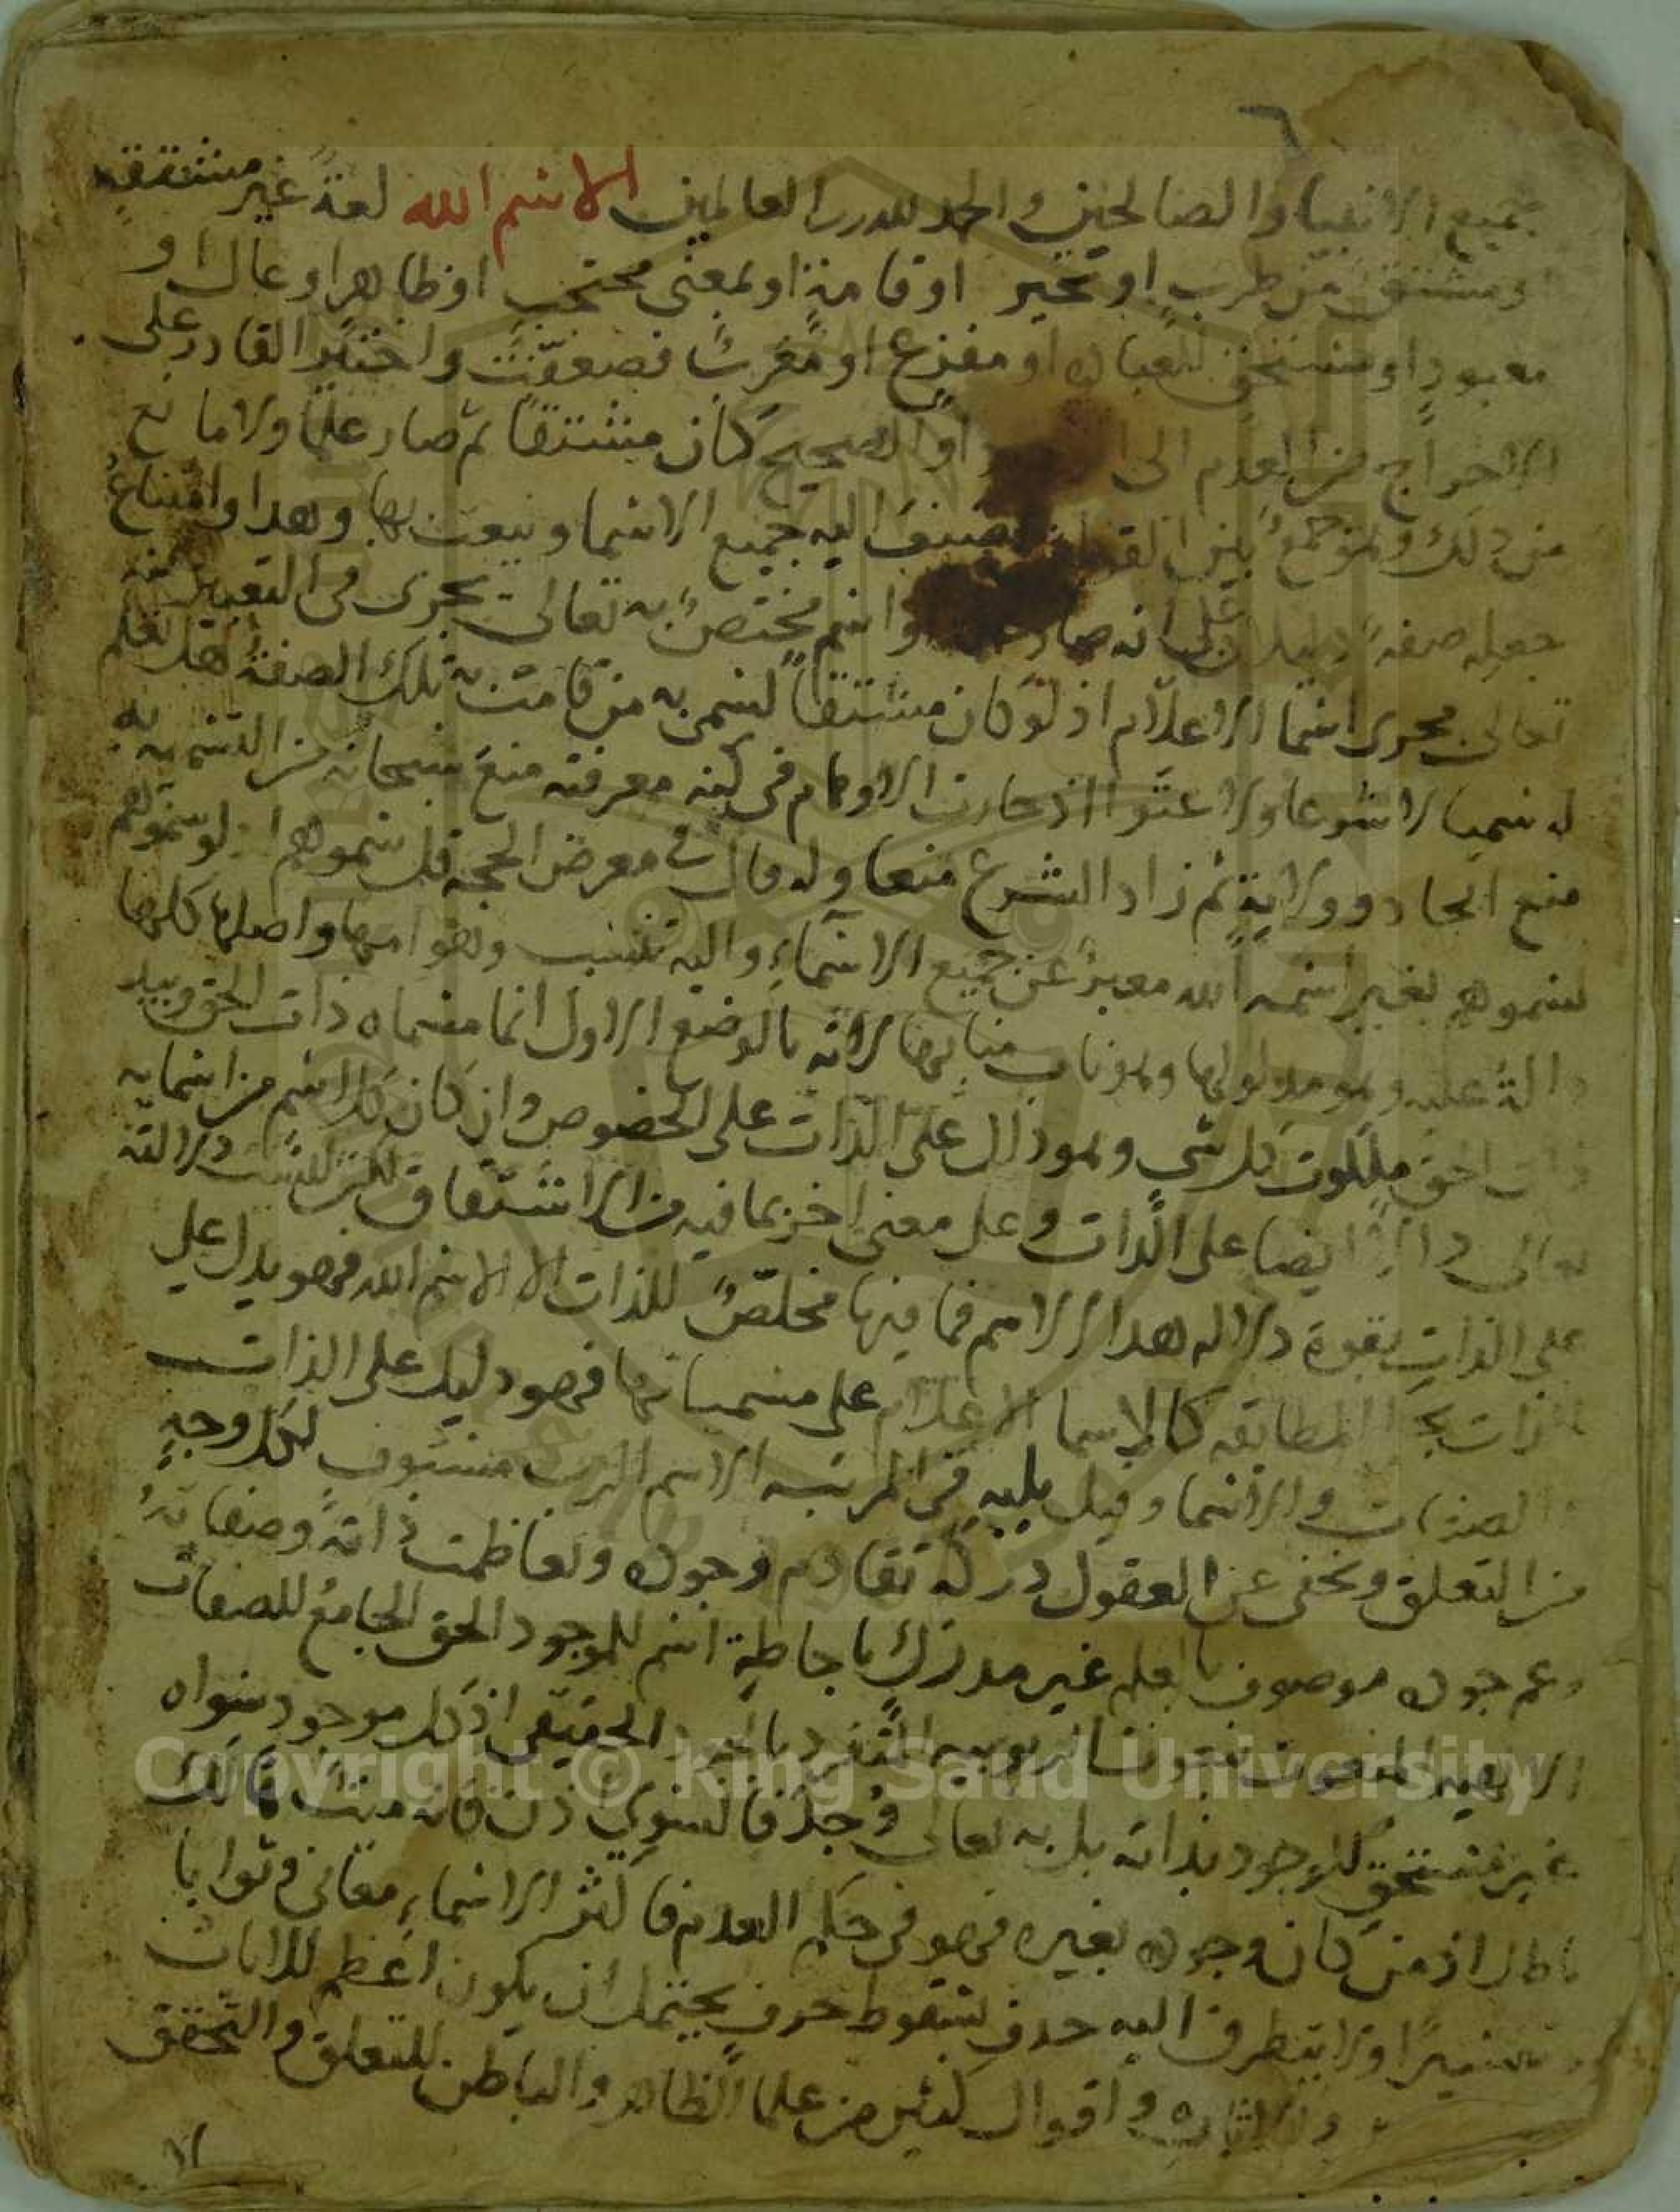 جميع الانبيا والصالحين والحمد لله رب العالمين الاسم الله لغة غير مشتقة
ومشتق من طرب او تحير او قامة او لمعنى محتجب او ظاهر او عال او
معبود او مستحق للعباده او مفزع او مغرب فضعفت واختير القادر على
الاخراج من العدم الى او الصحيح كان مشتقا ثم صار علما ولا مانع
من ذلك وهو جمع بين القولين يضيف اليه جميع الاسما وينعت بها وهذا وامتناع
جعله صفة دليلان على انه صار واسم مختص به تعالى يجرى فى التعبير عنه
تعالى مجرى اسما الاعلام اذ لو كان مشتقا لسمى به من قامت به تلك الصفة هل تعلم
له سميا لا شرعا ولا عتوا اذ حارت الاوهام فى كنه معرفته منع سبحانه من التسمية به
منع ايجاد وولاية ثم زاد الشرع منعا وله قال فى معرض الحجة قل سموهم لو سموهم
لسموهم بغير اسمه الله معبر عن جميع الاسماء واليه تنسب وهو امها واصلها كلها
دالة عليه وهو مدلولها وهو ناب منابها لانه بالوضع الاول انما مسماه ذات الحق وبيد
ذات الحق ملكوت كل شى وهو دال على الذات على الخصوص وان كان كل اسم من اسمايه
تعالى دالا ايضا على الذات وعلى معنى اخر بما فيه من الاشتقاق لكن ليست دلالته
على الذات بقوة دلالة هذا الاسم فما فيها مخلص للذات الا الاسم الله فهو يدل على
الذات بحكم المطابقه كالاسما الاعلام على مسمياتها فهو دليل على الذات
الصفات والاسما وقيل يليه فى المرتبه الاسم الرب منسوب لكل وجه
من التعلق ونخفى عن العقول دركه تقادم وجوده وتعاظمت ذاته وصفاته
وعم جوده موصوف بالعلم غير مدرك باحاطة اسم للموجود الحق الجامع للصفات
الالهيه المنعوت بنعوت الربوبيه المنفرد بالوجود الحقيقى اذ كل موجود سواه
غير مستحق للوجود بذاته بل به تعالى وجد فالسوى اذن فانه ميت هالك
باطل اذ من كان وجوده بغيره فهو فى حكم العدم فاكثر الاسماء معانى وثوابا
وتفسيرا ولا يتطرق اليه حذف بسقوط حرف يحتمل ان يكون اعظم للاثبات
والاشاره واقوال كثير من علما الظاهر والباطن للتعلق والتحقق